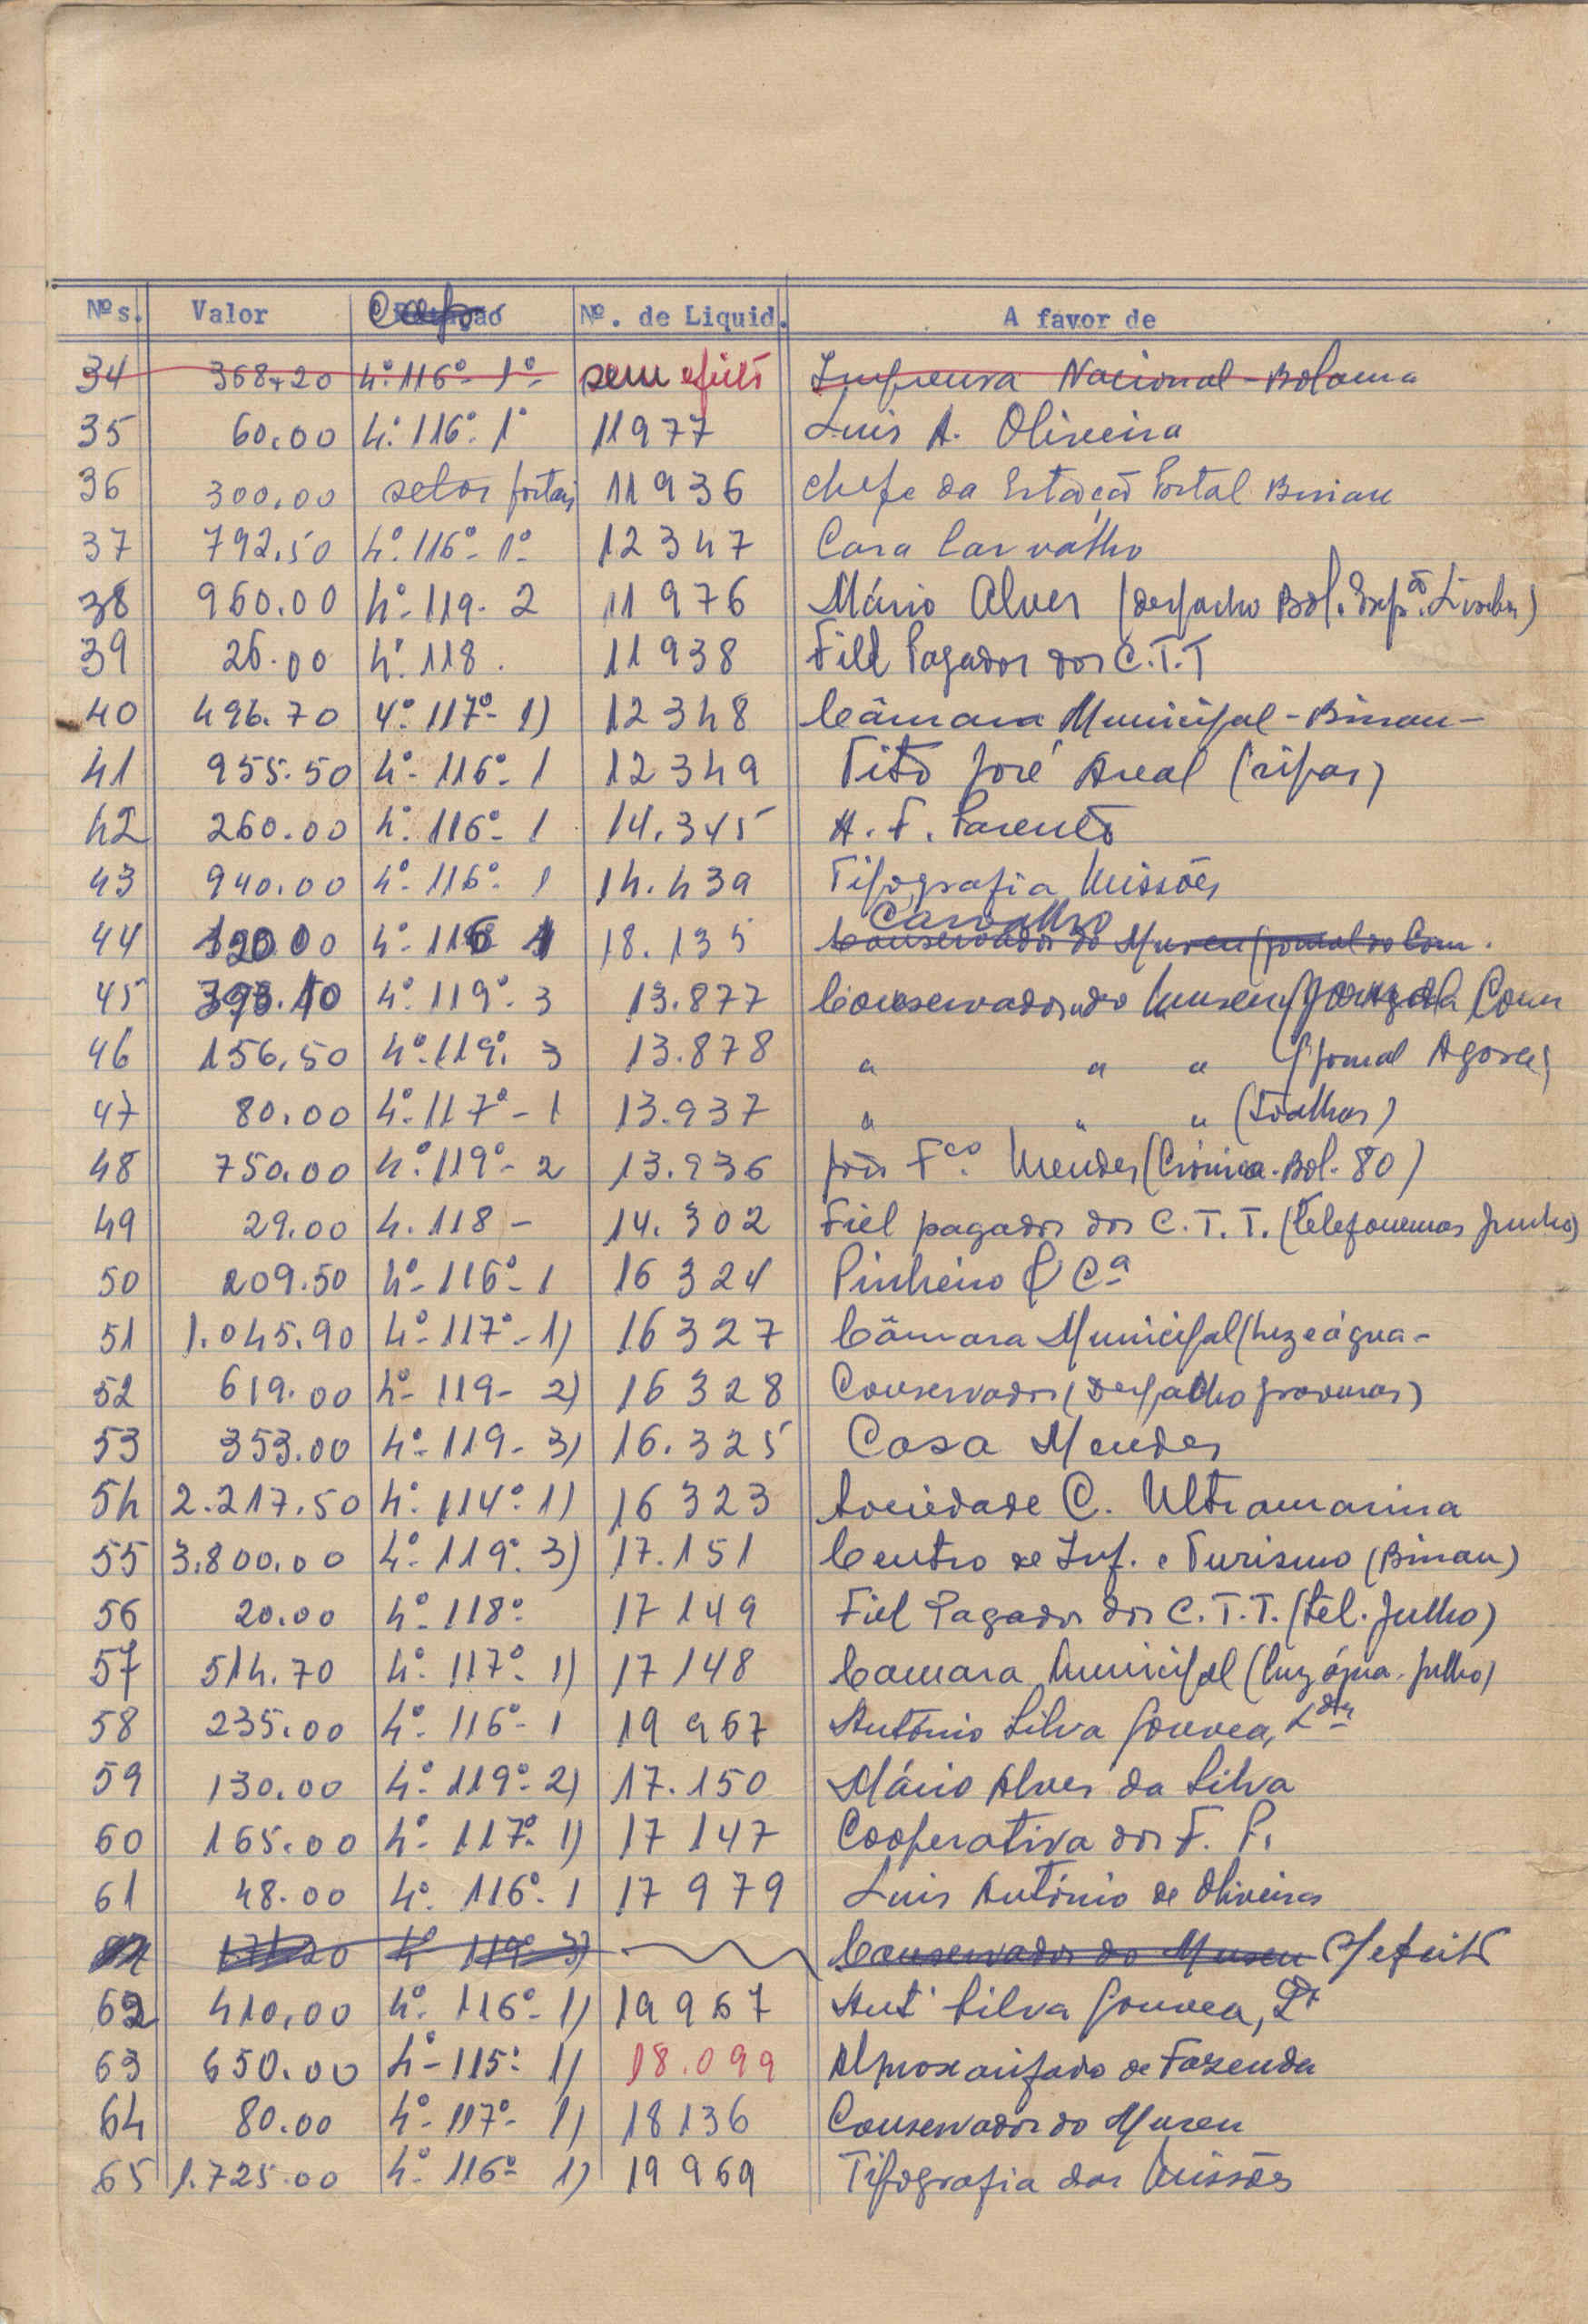 Nºs. Valor Cap Nº. de Liquid. A favor de
34 368,20 4º.116º-1º- sem efeito Imprensa Nacional-Bolama
35 60.00 4º.116º.1º 11977 Luis A. Oliveira
36 300.00 selos postais 11936 Chefe da Estação Postal Bissau
37 792.50 4º.116º-1º- 12347 Casa Carvalho
38 960.00 4º-119-2 11976 Mário Alves (despacho Bol. Lisboa)
39 26.00 4º.118. 11938 Fiel Pagador dos C.T.T
40 496.70 4º.117º-1) 12348 Câmara Municipal-Bissau-
41 955.50 4º-116º-1 12349 Tito José Areal (ripas)
42 260.00 4º.116º-1 14.345 A. F. Parente
43 940.00 4º-116º-1 14.439 Tipografia Missões
44 120.00 4º-116 1 18.135 Carvalho Conservador do Museu (jornal do Com.
45 393.10 4º.119º.3 13.877 Conservador do Museu (Jornal do Com
46 156.50 4º.119º.3 13.878 " " " (Jornal Agora)
47 80.00 4º.117º-1 13.937 " " " (toalhas)
48 750.00 4º.119º-2 13.936 Fco. Mendes (Crónica-Bol-80)
49 29.00 4.118- 14.302 Fiel pagador dos C.T.T. (telefonemas Junho)
50 209.50 4º-116º-1 16 324 Pinheiro & Cª
51 1.045.90 4º-117º-1) 16 327 Câmara Municipal (luz e água-
52 619.00 4º-119-2) 16 328 Conservador (despacho gravuras)
53 353.00 4º-119-3) 16.325 Casa Mendes
54 2.217.50 4º.114º.1) 16 323 Sociedade C. Ultramarina
55 3.800.00 4º-119º.3) 17.151 Centro de Inf. e Turismo (Bissau)
56 20.00 4º-118º 17 149 Fiel Pagador dos C.T.T. (tel. Julho)
57 514.70 4º-117º-1) 17 148 Camara Municipal (luz água-Julho)
58 235.00 4º-116º-1 19 967 António Silva Gouvea, Lda
59 130.00 4º-119º-2) 17.150 Mário Alves da Silva
60 165.00 4º-117º-1) 17 147 Cooperativa dos F. P.
61 48.00 4º. 116º-1 17 979 Luis António de Oliveira
4º 119º 3) Conservador do Museu s/efeito
62 410.00 4º. 116º-1) 19 967 Antº Silva Gouvea, Lda
63 650.00 4º-115º 1) 18.099 Almoxarifado de Fazenda
64 80.00 4º-117º-1) 18136 Conservador do Museu
65 1.725.00 4º-116º 1) 19 969 Tipografia das Missões